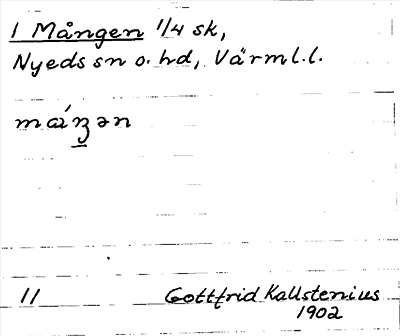 1 Mången 1/4 sk,
Nyeds sn o. hd, Värml.l.
11
Gottfrid Kallstenius
1902